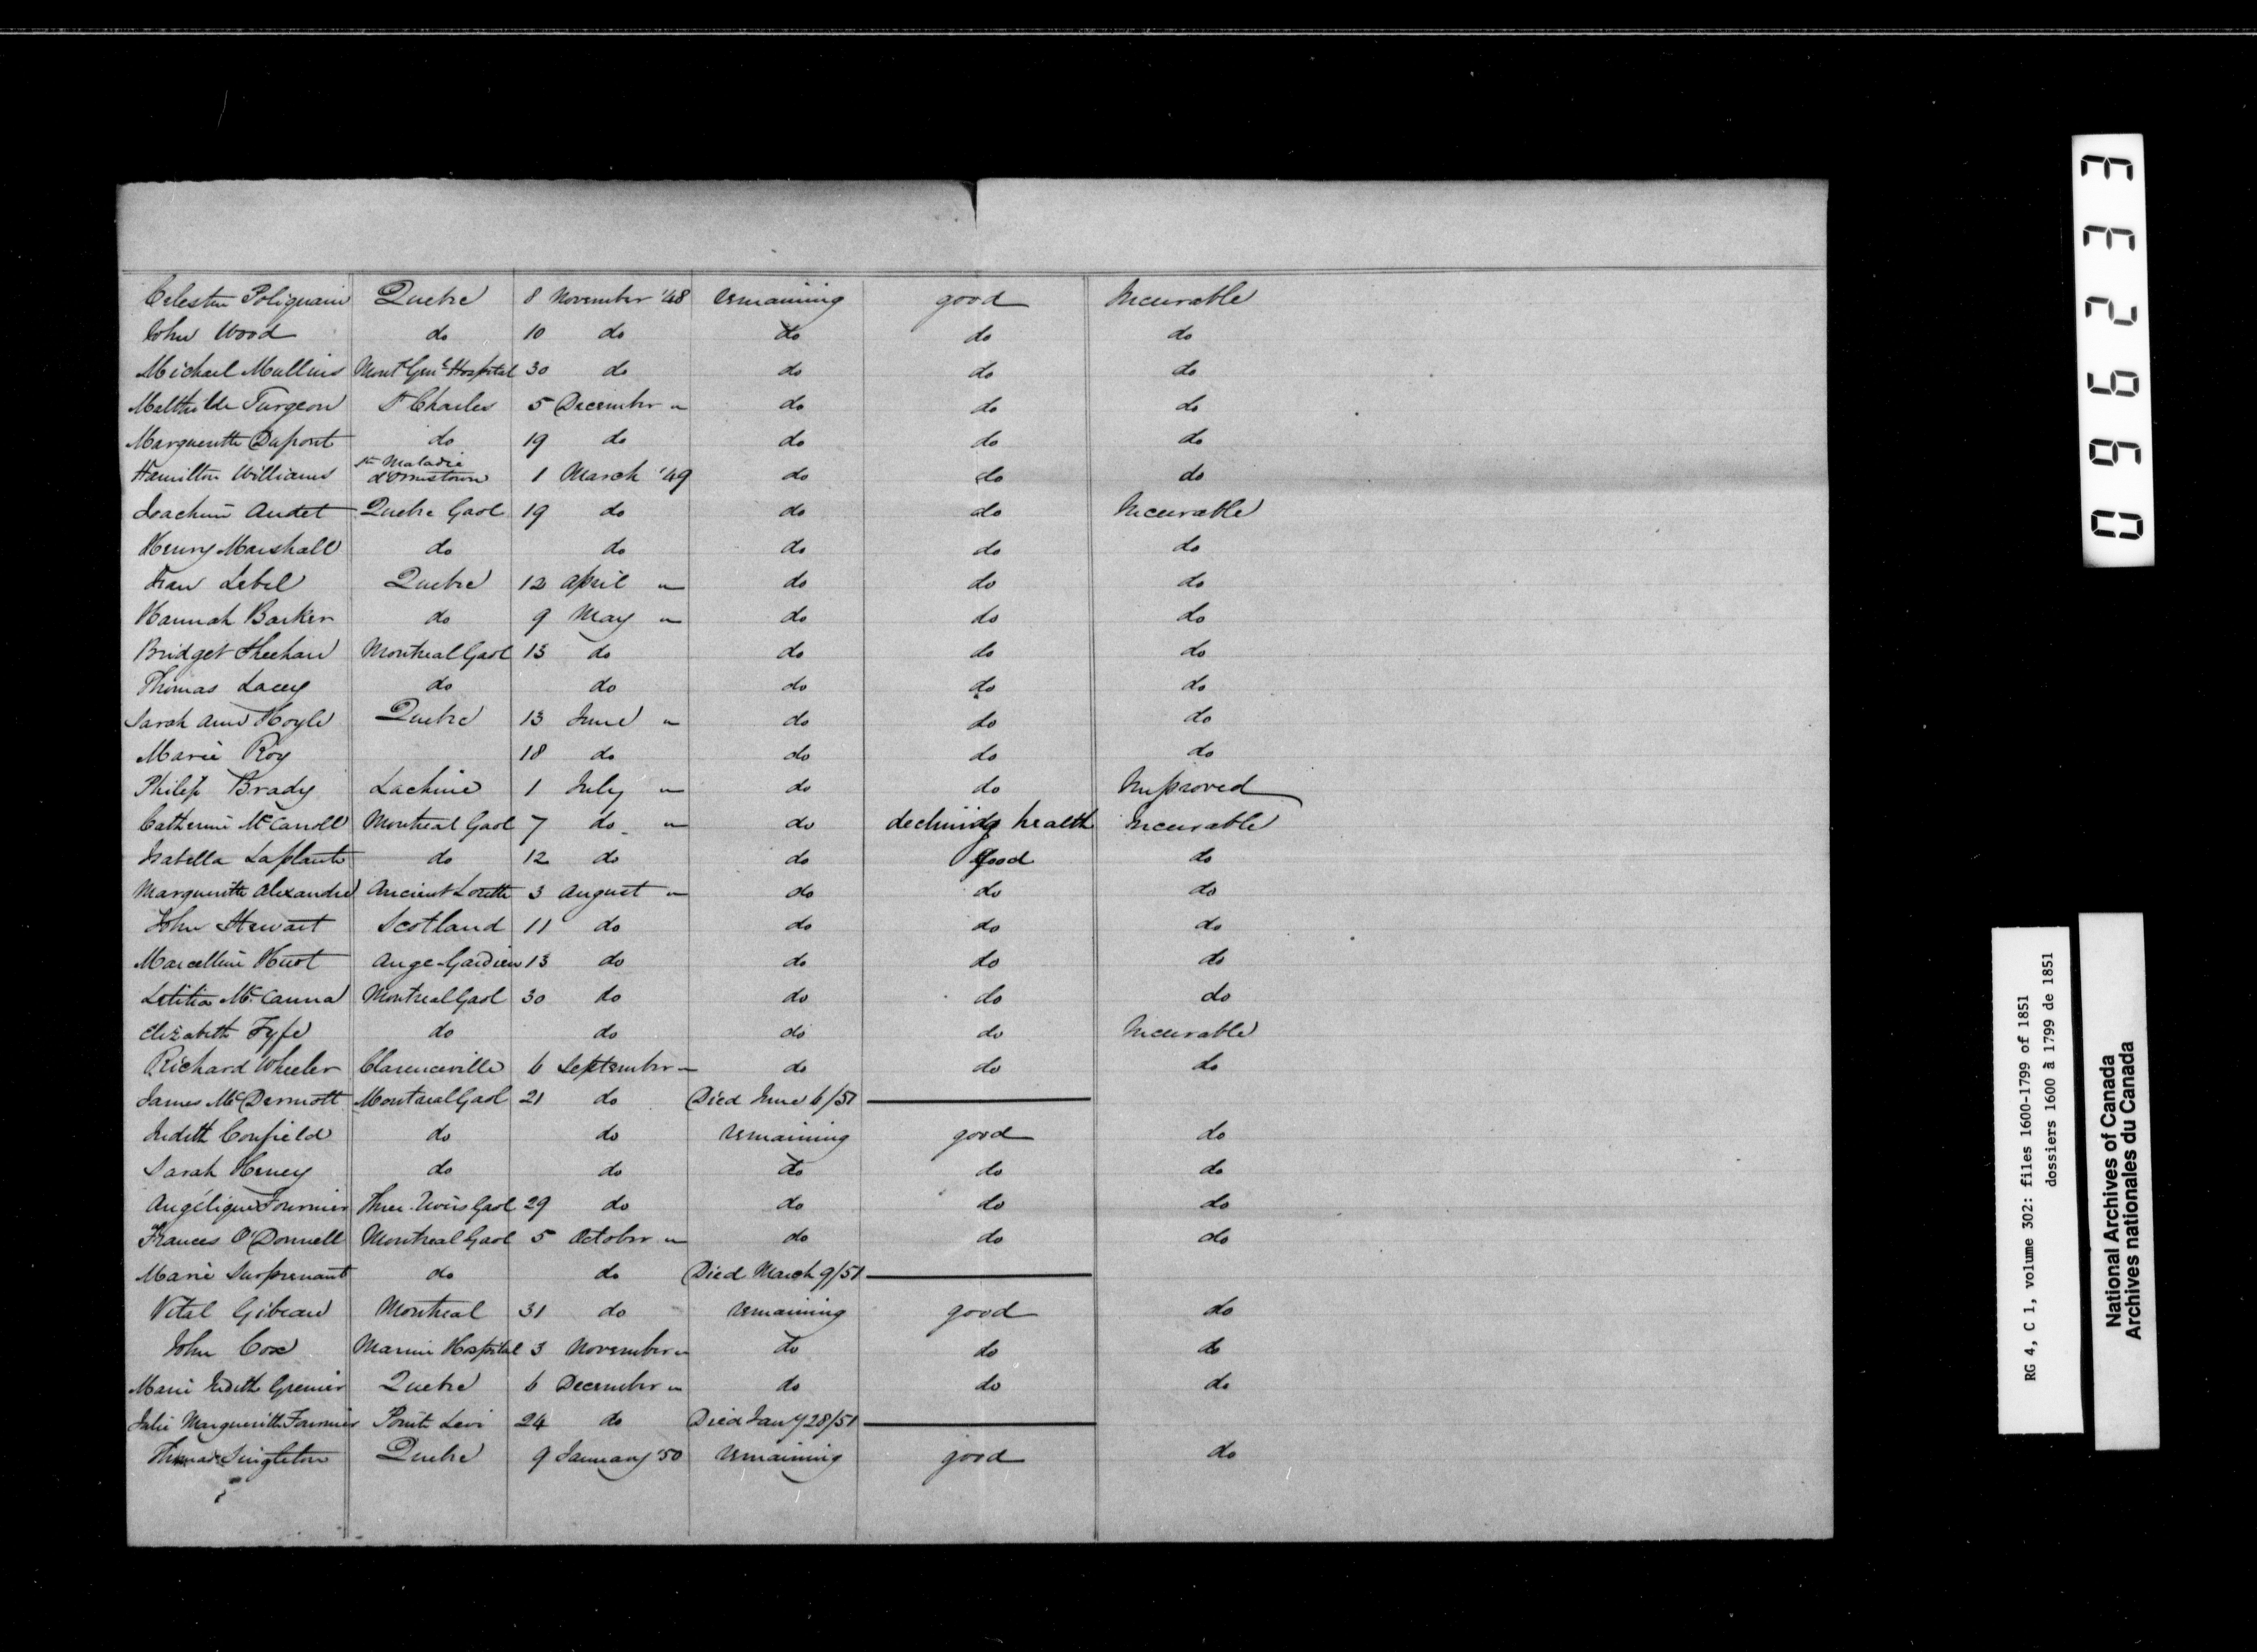 Celestin Poliquain Quebec 8 November '48 remaining good Incurable
John Wood do 10 do do do do
Michael Mullins Mont Genl Hospital 30 do do do do
Malthilde Turgeon St Charles 5 December " do do do
Marguerite Dupont do 19 do do do do
Hamilton Williams Ste Maladie d'Ormstown 1 March '49 do do do
Joachim Audet Quebec Gaol 19 do do do Incurable
Henry Marshall do do do do do
Lebel Quebec 12 April " do do do
Hannah Barker do 9 May " do do do
Bridget Sheehan Montreal Gaol 13 do do do do
Thomas Lacey do do do do do
Sarah Ann Hoyle Quebec 13 June " do do do
Marie Roy 18 do do do do
Philip Brady Lachine 1 July " do do Improved
Catherine McCarroll Montreal Gaol 7 do " do declining health Incurable
Isabella Laplante do 12 do do good do
Marguerite Alexandre Ancient Lorette 3 August " do do do
John Stewart Scotland 11 do do do do
Marcelline Huot Ange Gardien 13 do do do do
Letitia McCanna Montreal Gaol 30 do do do do
Elizabeth Fyfe do do do do Incurable
Richard Wheeler Clarenceville 6 September " do do do
James McDermott Montreal Gaol 21 do Died June 6/51
Judith Confield do do remaining good do
Sarah Heney do do do do do
Angélique Fournier Three Rivers Gaol 29 do do do do
Frances O'Donnell Montreal Gaol 5 October " do do do
Marie Surprenant do do Died March 9/51
Vital Gibeau Montreal 31 do remaining good do
John Cox Marine Hospital 3 November " do do do
Marie Judith Grenier Quebec 6 December " do do do
Julie Marguerite Fournier Point Levi 24 do Died Jany 28/51
Thomas Singleton Quebec 9 January '50 remaining good do
096233
RG 4, C 1, volume 302: files 1600-1799 of 1851
dossiers 1600 à 1799 de 1851
National Archives of Canada
Archives nationales du Canada